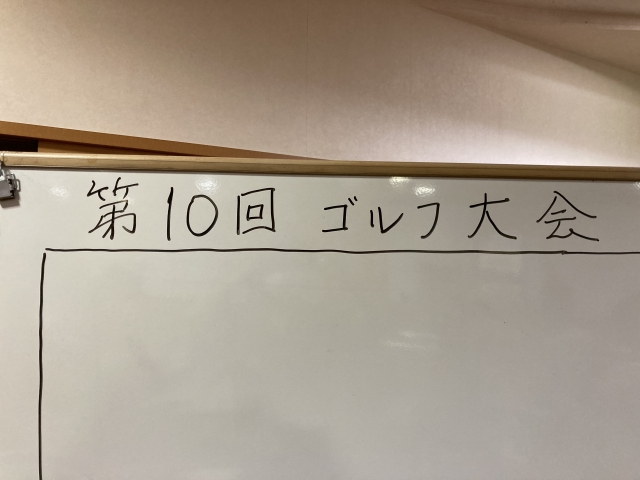 第10回 ゴルフ大会